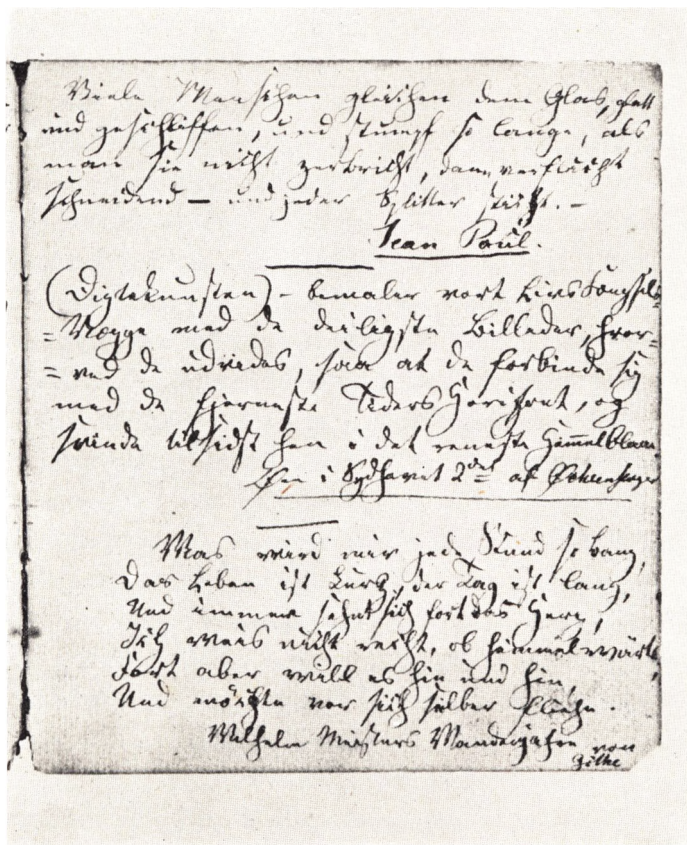 Viele Menschen gleichen dem Glas, glatt
und geschliffen, und stumpf so lange, als
man sie nicht zerbricht, dann verflucht
schneidend — und jeder Splitter sticht. —
Jean Paul.
(Digtekunsten) - bemaler vort Livs Fængsels
=Vægge med de deiligste Billeder, hvor-
=ved de udvides, saa at de forbinde sig
med de fjerneste Tiders Horizont, og
svinde tilsidst hen i det reneste Himmelblaae.
Øen i Sydhavet 2den af Øhlenschlæger
Was wird mir jede Stund so bang,
Das Leben ist kurtz, der Tag ist lang,
Und immer sehnt sich fort das Herz,
Ich weis nicht recht, ob himmelwärts,
Fort aber will es hin und hin,
Und möchte vor sich selber fliehn.
Wilhelm Meisters Wanderjahre von
Göthe